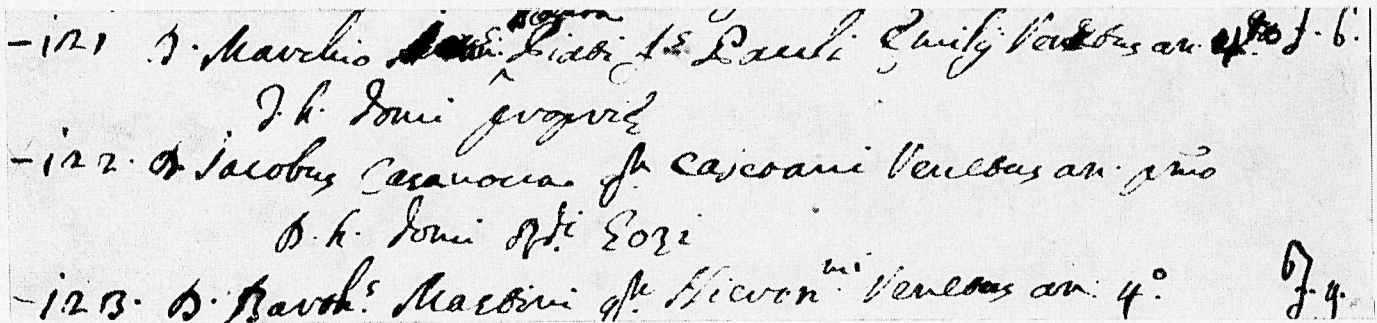 - 121 D. Marchio Piati f.s Pauli Emilij Venetus an. 4to J. 6.
D. h. domi propriè
- 122. D. Jacobus Casanova qm Caietani Venetus an. pmo
D. h. domi Gozi
- 123. D. Barths. Martini qm Hieronmi Venetus an. 4º. J. 4.